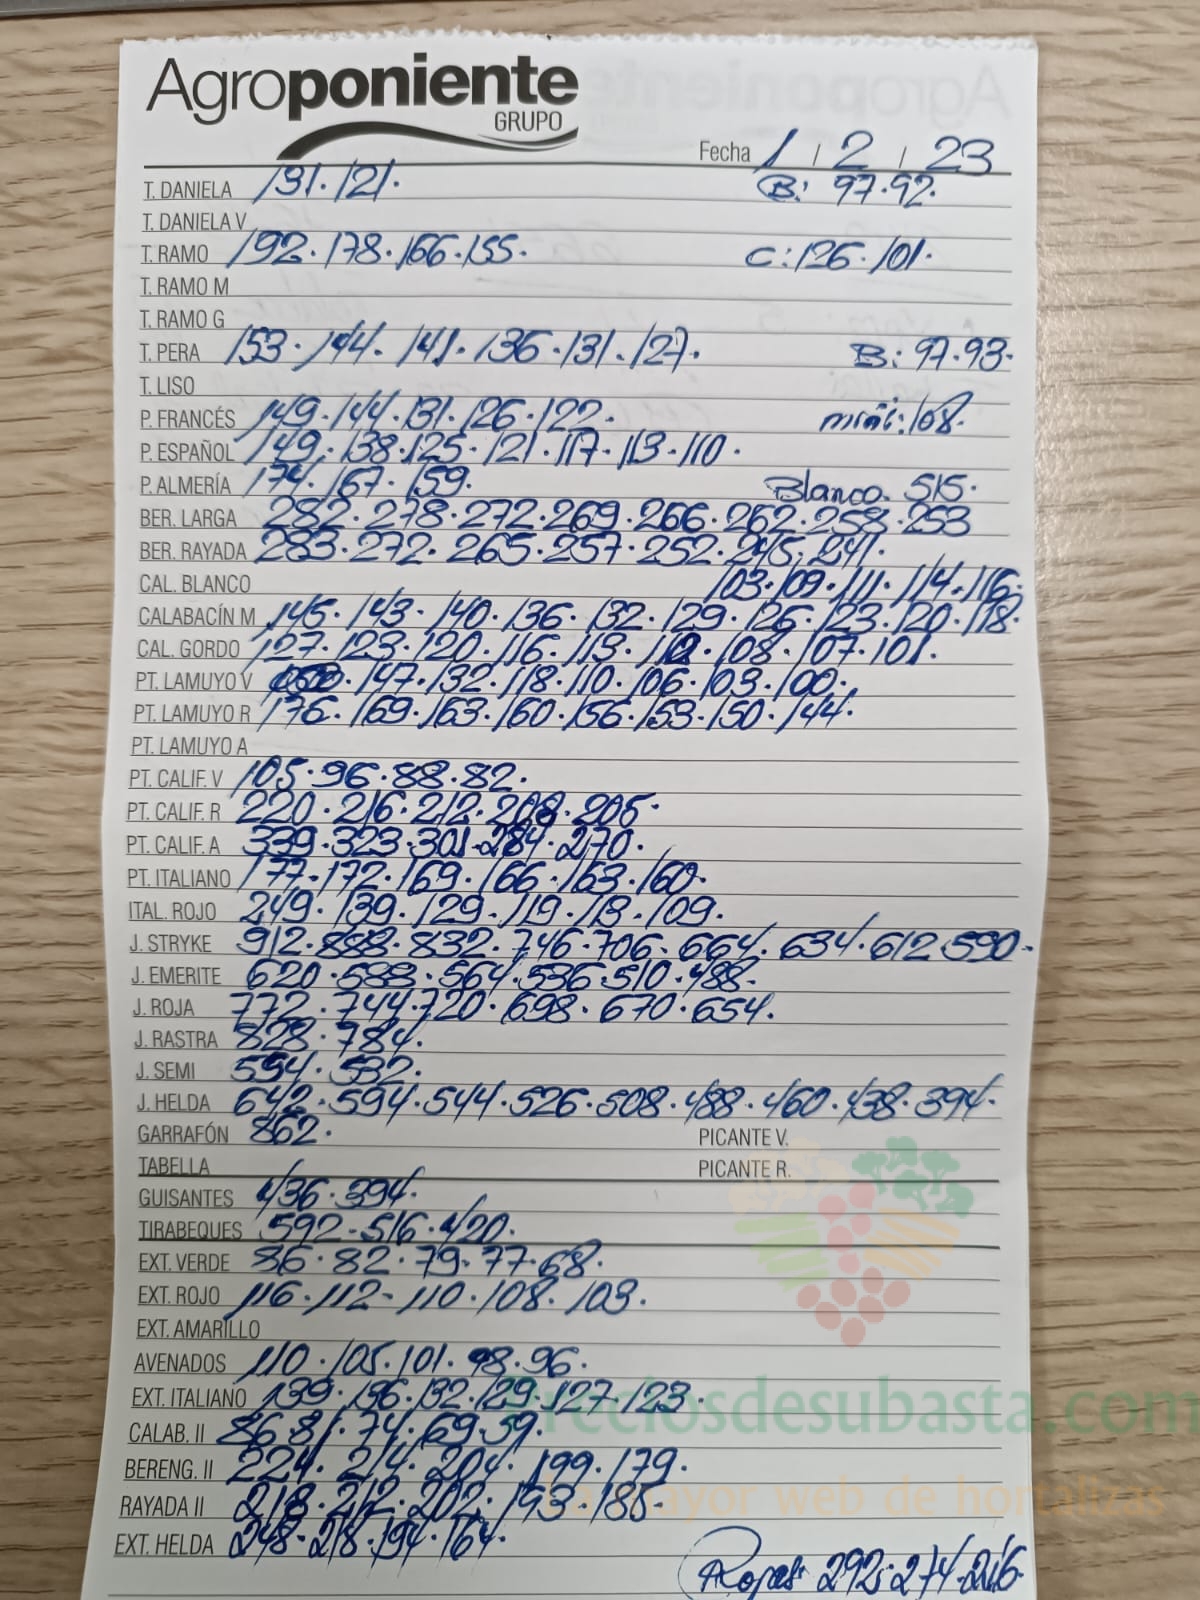 Agroponiente
GRUPO
Fecha 1 / 2 / 23
T. DANIELA 131. 121. B: 97.92.
T. DANIELA V
T. RAMO 192. 178. 166. 155. C: 126. 101.
T. RAMO M
T. RAMO G
T. PERA 153. 144. 141. 136. 131. 127. B: 97.93.
T. LISO
P. FRANCÉS 149. 144. 131. 126. 122. mini: 108.
P. ESPAÑOL 149. 138. 125. 121. 117. 113. 110.
P. ALMERÍA 174. 167. 159. Blanco. 515.
BER. LARGA 282. 278. 272. 269. 266. 262. 258. 253
BER. RAYADA 283. 272. 265. 257. 252. 245. 241.
CAL. BLANCO 103. 109. 111. 114. 116.
CALABACÍN M 145. 143. 140. 136. 132. 129. 126. 123. 120. 118.
CAL. GORDO 127. 123. 120. 116. 113. 112. 108. 107. 101.
PT. LAMUYO V 147. 132. 118. 110. 106. 103. 100.
PT. LAMUYO R 176. 169. 163. 160. 156. 153. 150. 144.
PT. LAMUYO A
PT. CALIF. V 105. 96. 88. 82.
PT. CALIF. R 220. 216. 212. 208. 205.
PT. CALIF. A 339. 323. 301. 284. 270.
PT. ITALIANO 177. 172. 169. 166. 163. 160.
ITAL. ROJO 249. 139. 129. 119. 113. 109.
J. STRYKE 912. 888. 832. 746. 706. 664. 634. 612. 590.
J. EMERITE 620. 588. 564. 536. 510. 488.
J. ROJA 772. 744. 720. 698. 670. 654.
J. RASTRA 828. 784.
J. SEMI 594. 532.
J. HELDA 642. 594. 544. 526. 508. 488. 460. 438. 394.
GARRAFÓN 862. PICANTE V.
TABELLA PICANTE R.
GUISANTES 436. 394.
TIRABEQUES 592. 516. 420.
EXT. VERDE 86. 82. 79. 77. 68.
EXT. ROJO 116. 112. 110. 108. 103.
EXT. AMARILLO
AVENADOS 110. 105. 101. 98. 96.
EXT. ITALIANO 139. 136. 132. 129. 127. 123.
Preciosdesubasta.com
CALAB. II 86. 81. 74. 69. 59.
BERENG. II 224. 214. 204. 199. 179.
mayor web de hortalizas
RAYADA II 218. 212. 202. 193. 185.
EXT. HELDA 248. 218. 194. 164.
Rojas: 292. 274. 216.